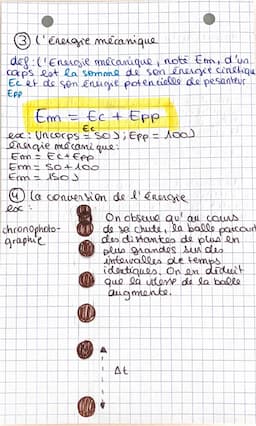 ③ L'énergie mécanique
def: L'Energie mécanique, noté Em, d'un
corps est la somme de son énergie cinétique
Ec et de son énergie potentielle de pesanteur
Epp
Em = Ec + Epp
ex: Un corps Ec = 50J; Epp = 100J
énergie mécanique:
Em = Ec + Epp
Em = 50 + 100
Em = 150J
④ La conversion de l'énergie
ex:
chronophoto-
graphie
On observe qu'au cours
de sa chute, la balle parcourt
des distances de plus en
plus grandes sur des
intervalles de temps
identiques. On en déduit
que la vitesse de la balle
augmente.
Δt